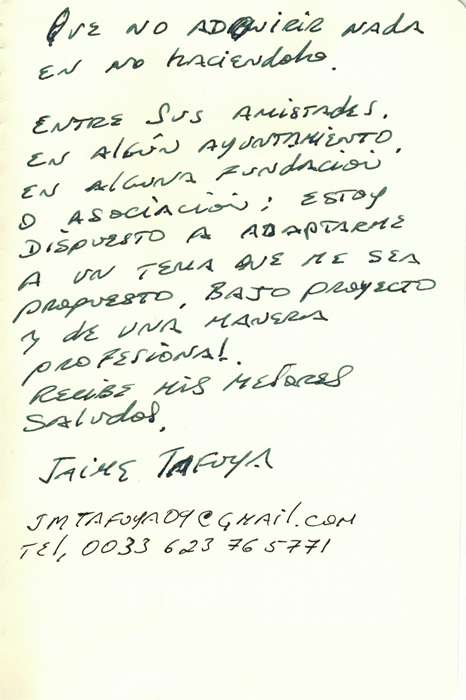 QUE NO ADQUIRIR NADA
EN NO HACIENDOLO.
ENTRE SUS AMISTADES,
EN ALGÚN AYUNTAMIENTO,
EN ALGUNA FUNDACIÓN
O ASOCIACIÓN; ESTOY
DISPUESTO A ADAPTARME
A UN TEMA QUE ME SEA
PROPUESTO, BAJO PROYECTO
Y DE UNA MANERA
PROFESIONAL.
RECIBE MIS MEJORES
SALUDOS,
JAIME TAFUYA
JMTAFUYA09@GMAIL.COM
TEL, 0033 623 76 5771